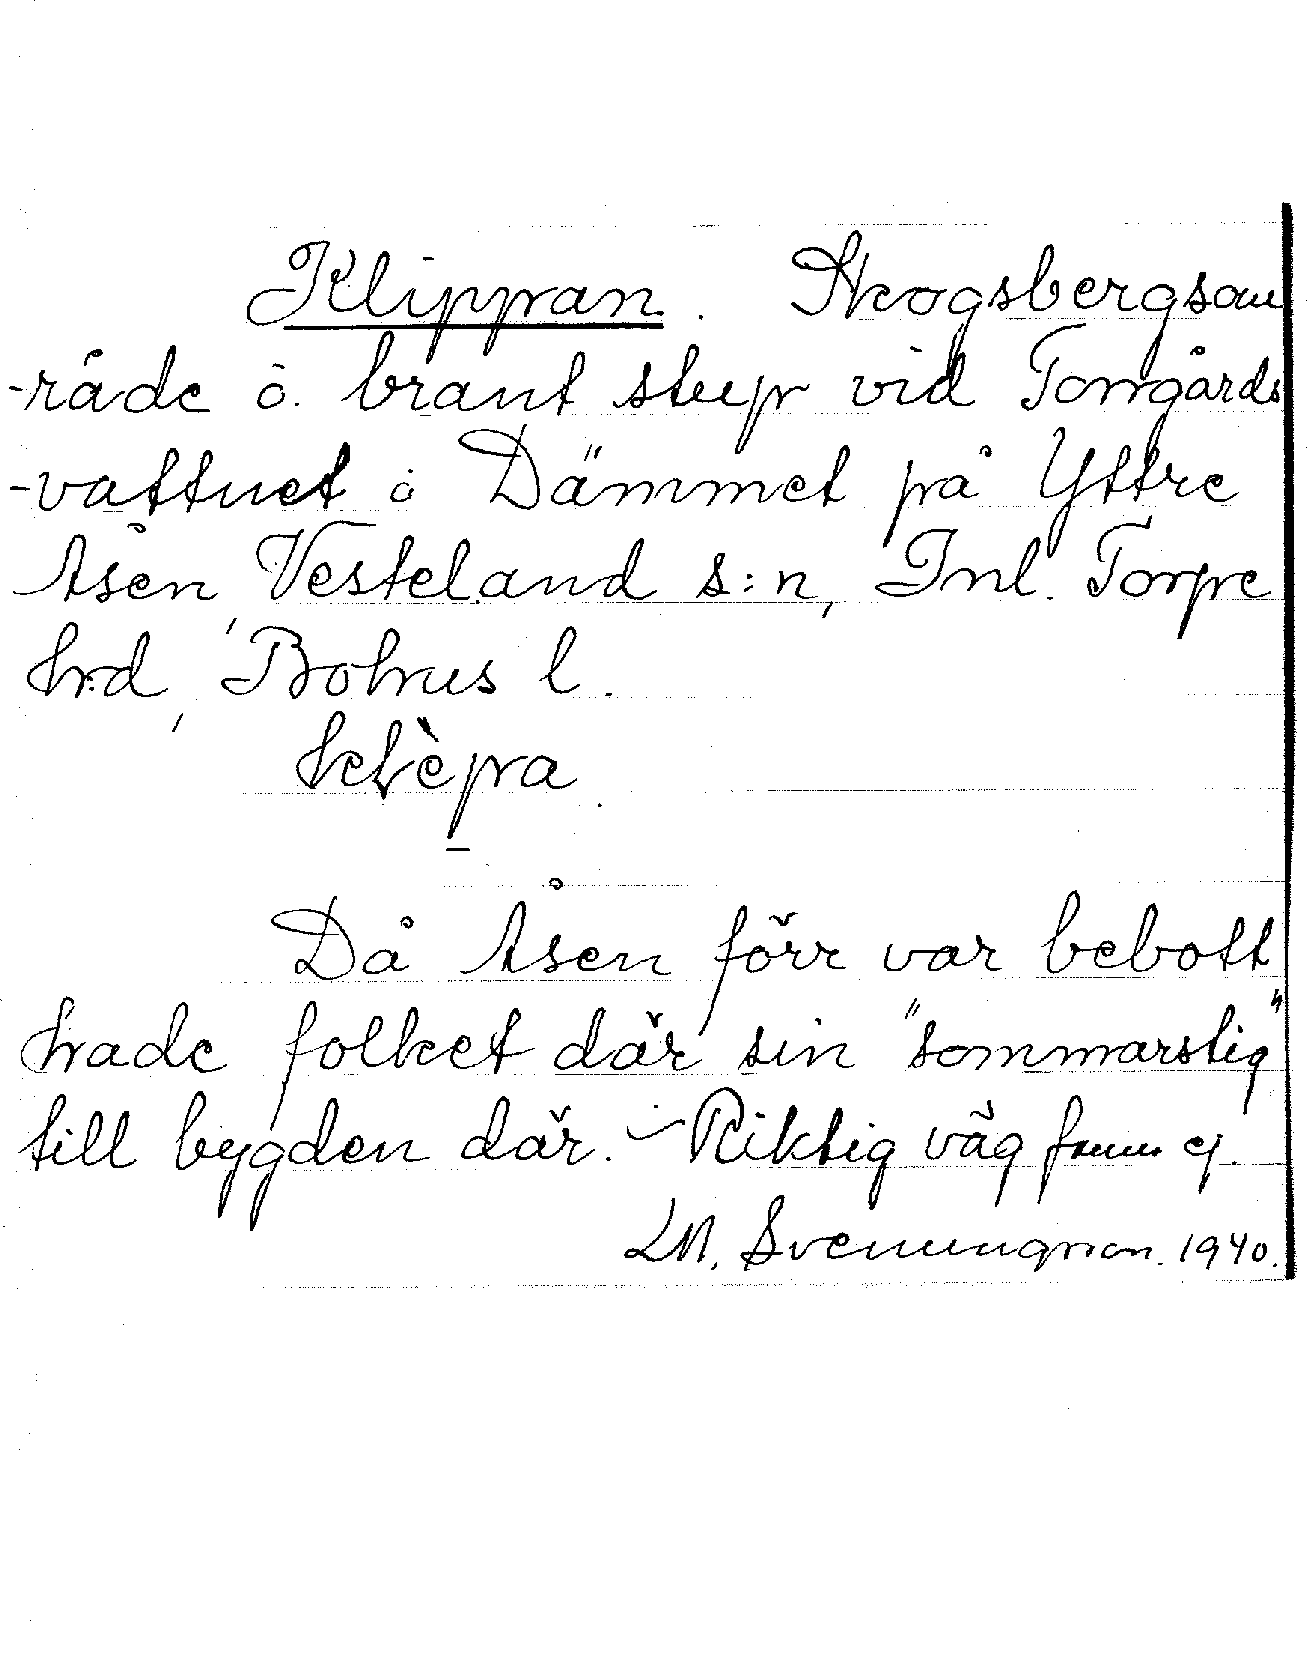 Klippan. Skogsbergsom
-råde o. brant stup vid Torrgårds
-vattnet o Dämmet på Yttre
Åsen, Vesteland s:n, Inl. Torpe
hrd, Bohus l.
Då Åsen förr var bebott
hade folket där sin "sommarstig"
till bygden där. – Riktig väg fanns ej.
LM. Svenungsson. 1940.